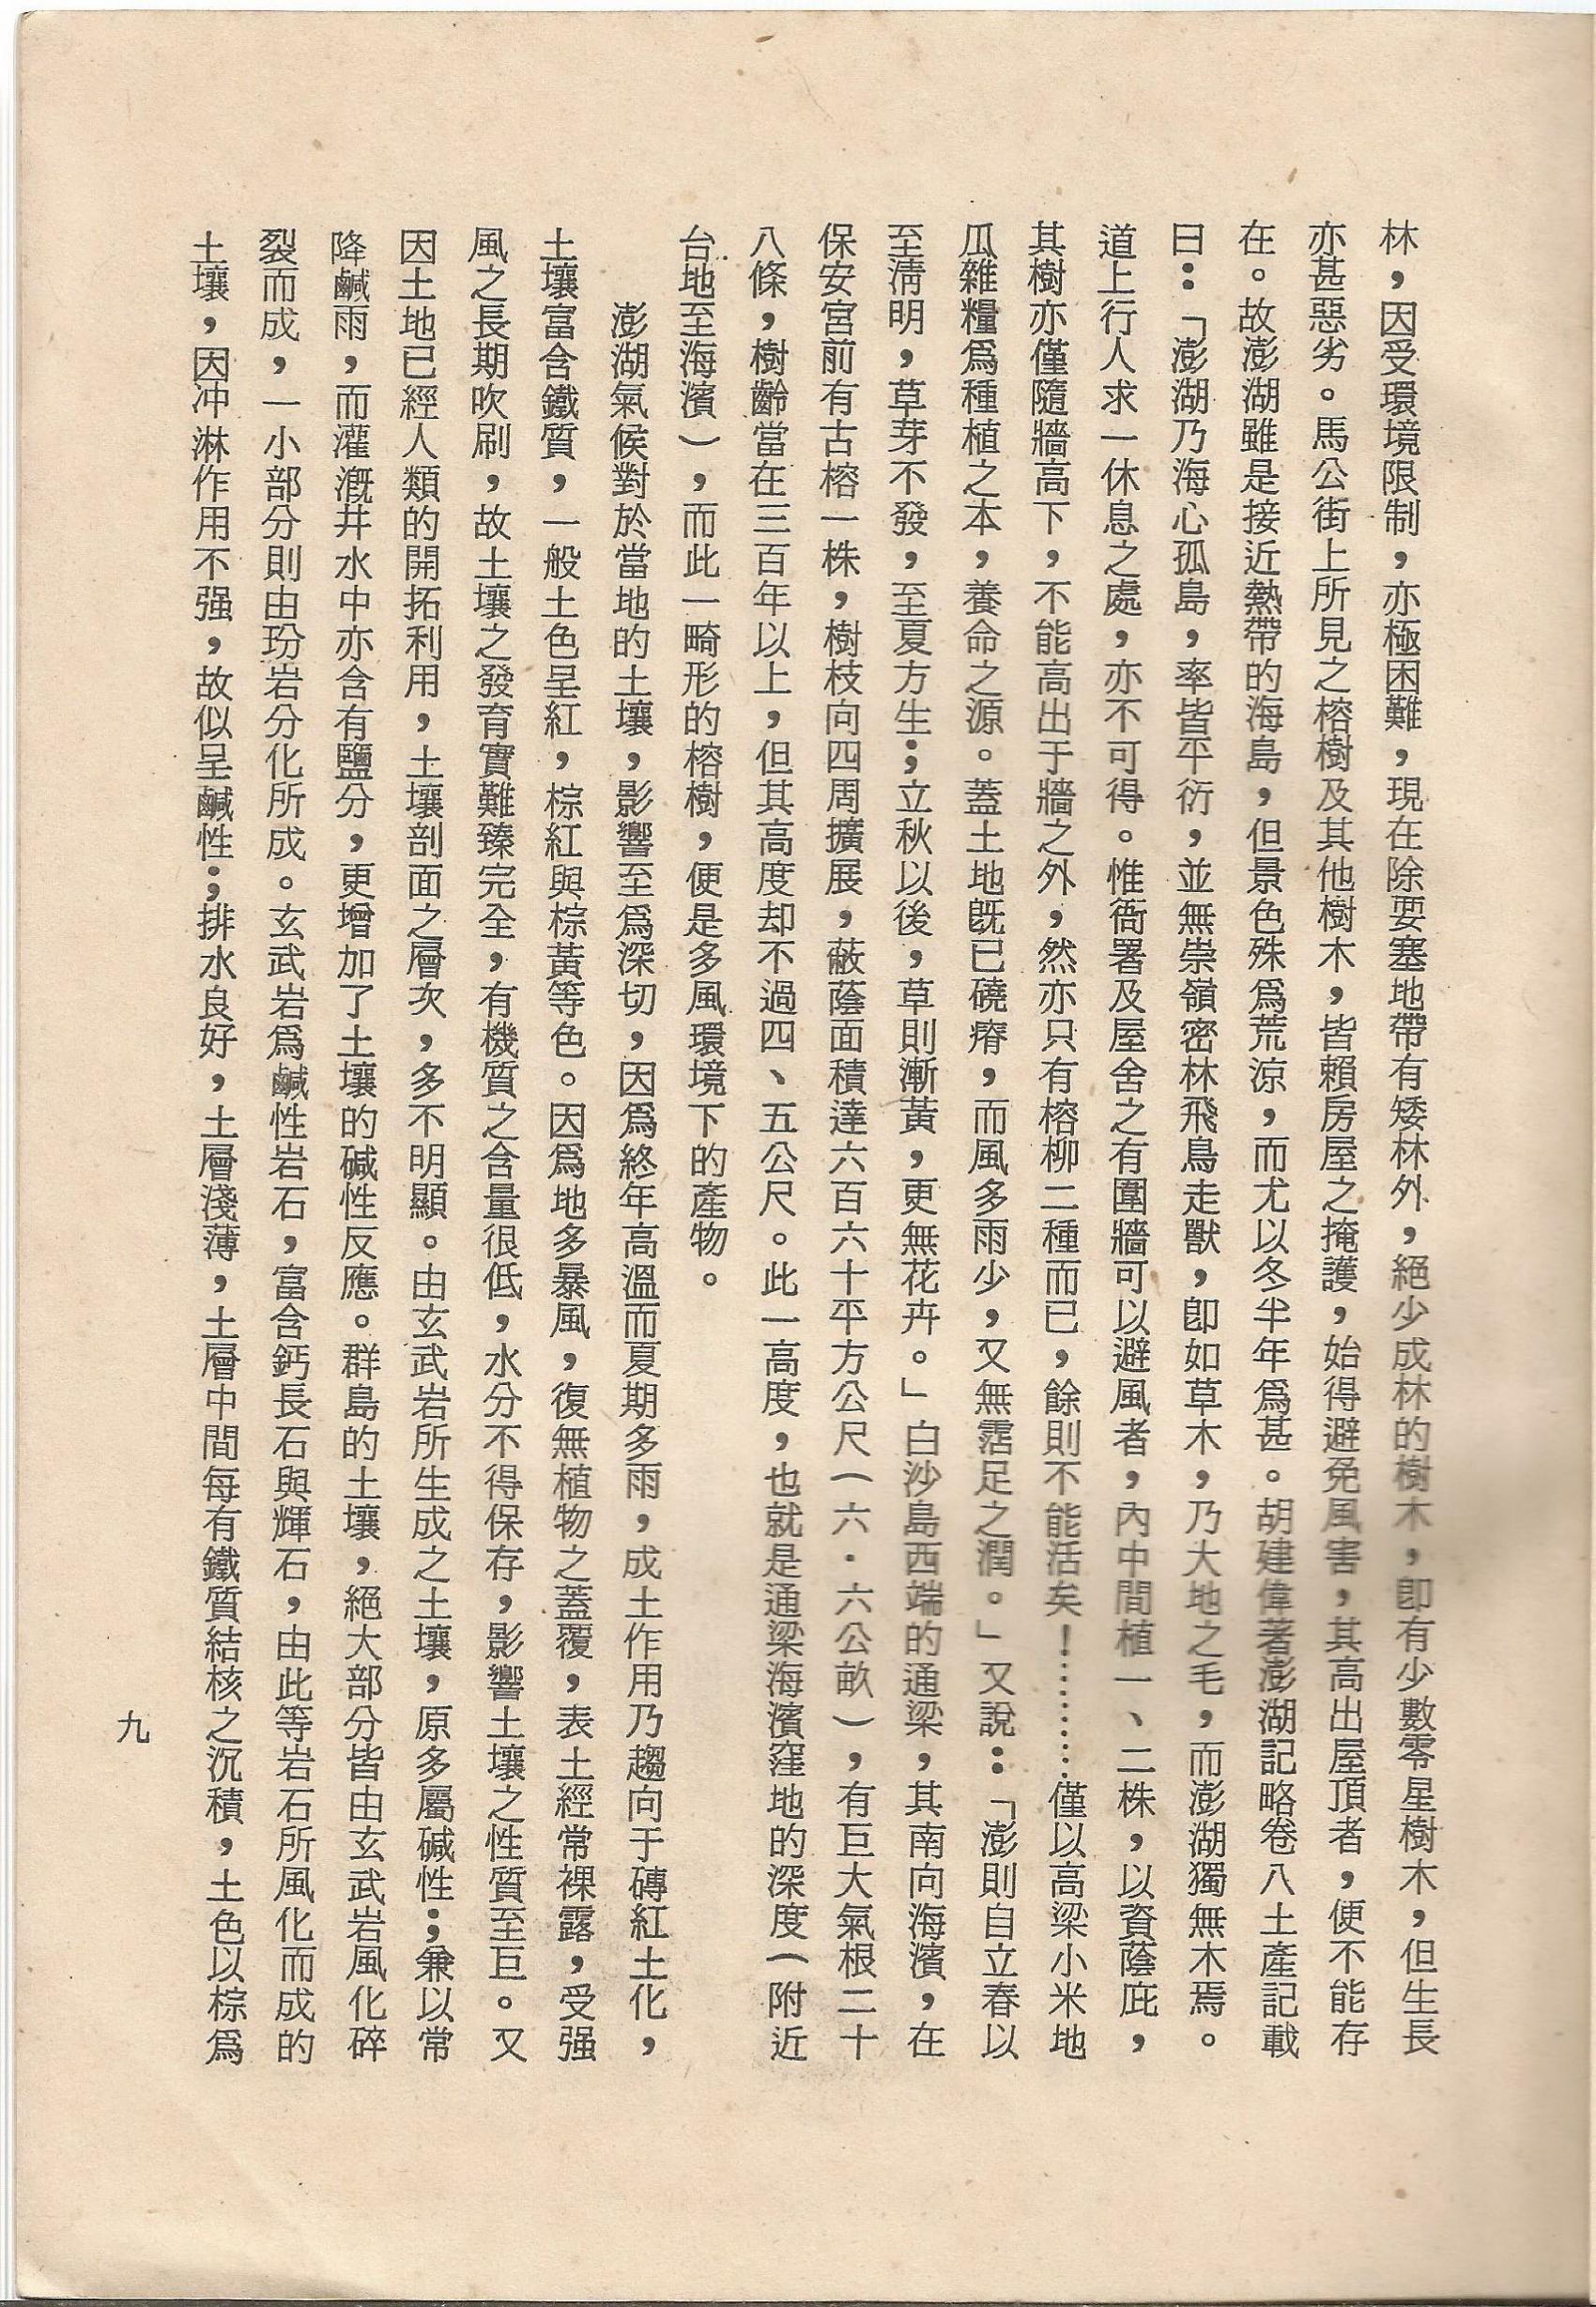 林，因受環境限制，亦極困難，現在除要塞地帶有矮林外，絕少成林的樹木，卽有少數零星樹木，但生長
亦甚惡劣。馬公街上所見之榕樹及其他樹木，皆賴房屋之掩護，始得避免風害，其高出屋頂者，便不能存
在。故澎湖雖是接近熱帶的海島，但景色殊爲荒涼，而尤以冬半年爲甚。胡建偉著澎湖記略卷八土產記載
曰：「澎湖乃海心孤島，率皆平衍，並無崇嶺密林飛鳥走獸，卽如草木，乃大地之毛，而澎湖獨無木焉。
道上行人求一休息之處，亦不可得。惟衙署及屋舍之有圍牆可以避風者，內中間植一、二株，以資蔭庇，
其樹亦僅隨牆高下，不能高出于牆之外，然亦只有榕柳二種而已，餘則不能活矣！………僅以高梁小米地
瓜雜糧爲種植之本，養命之源。蓋土地旣已磽瘠，而風多雨少，又無霑足之潤。」又說：「澎則自立春以
至淸明，草芽不發，至夏方生；立秋以後，草則漸黃，更無花卉。」白沙島西端的通梁，其南向海濱，在
保安宮前有古榕一株，樹枝向四周擴展，蔽蔭面積達六百六十平方公尺（六．六公畝），有巨大氣根二十
八條，樹齡當在三百年以上，但其高度却不過四、五公尺。此一高度，也就是通梁海濱窪地的深度（附近
台地至海濱），而此一畸形的榕樹，便是多風環境下的產物。
澎湖氣候對於當地的土壤，影響至爲深切，因爲終年高溫而夏期多雨，成土作用乃趨向于磚紅土化，
土壤富含鐵質，一般土色呈紅，棕紅與棕黃等色。因爲地多暴風，復無植物之蓋覆，表土經常裸露，受强
風之長期吹刷，故土壤之發育實難臻完全，有機質之含量很低，水分不得保存，影響土壤之性質至巨。又
因土地已經人類的開拓利用，土壤剖面之層次，多不明顯。由玄武岩所生成之土壤，原多屬碱性；兼以常
降鹹雨，而灌漑井水中亦含有鹽分，更增加了土壤的碱性反應。群島的土壤，絕大部分皆由玄武岩風化碎
裂而成，一小部分則由玢岩分化所成。玄武岩爲鹹性岩石，富含鈣長石與輝石，由此等岩石所風化而成的
土壤，因冲淋作用不强，故似呈鹹性；排水良好，土層淺薄，土層中間每有鐵質結核之沉積，土色以棕爲
九